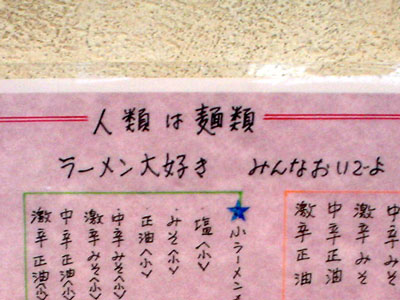 人類は麺類
ラーメン大好き みんなおいで-よ
★小ラーメン
塩〈小〉
みそ〈小〉
正油〈小〉
中辛みそ〈小〉
激辛みそ〈小〉
中辛正油〈小〉
激辛正油〈小〉
激辛みそ
中辛みそ
中辛正油
激辛正油